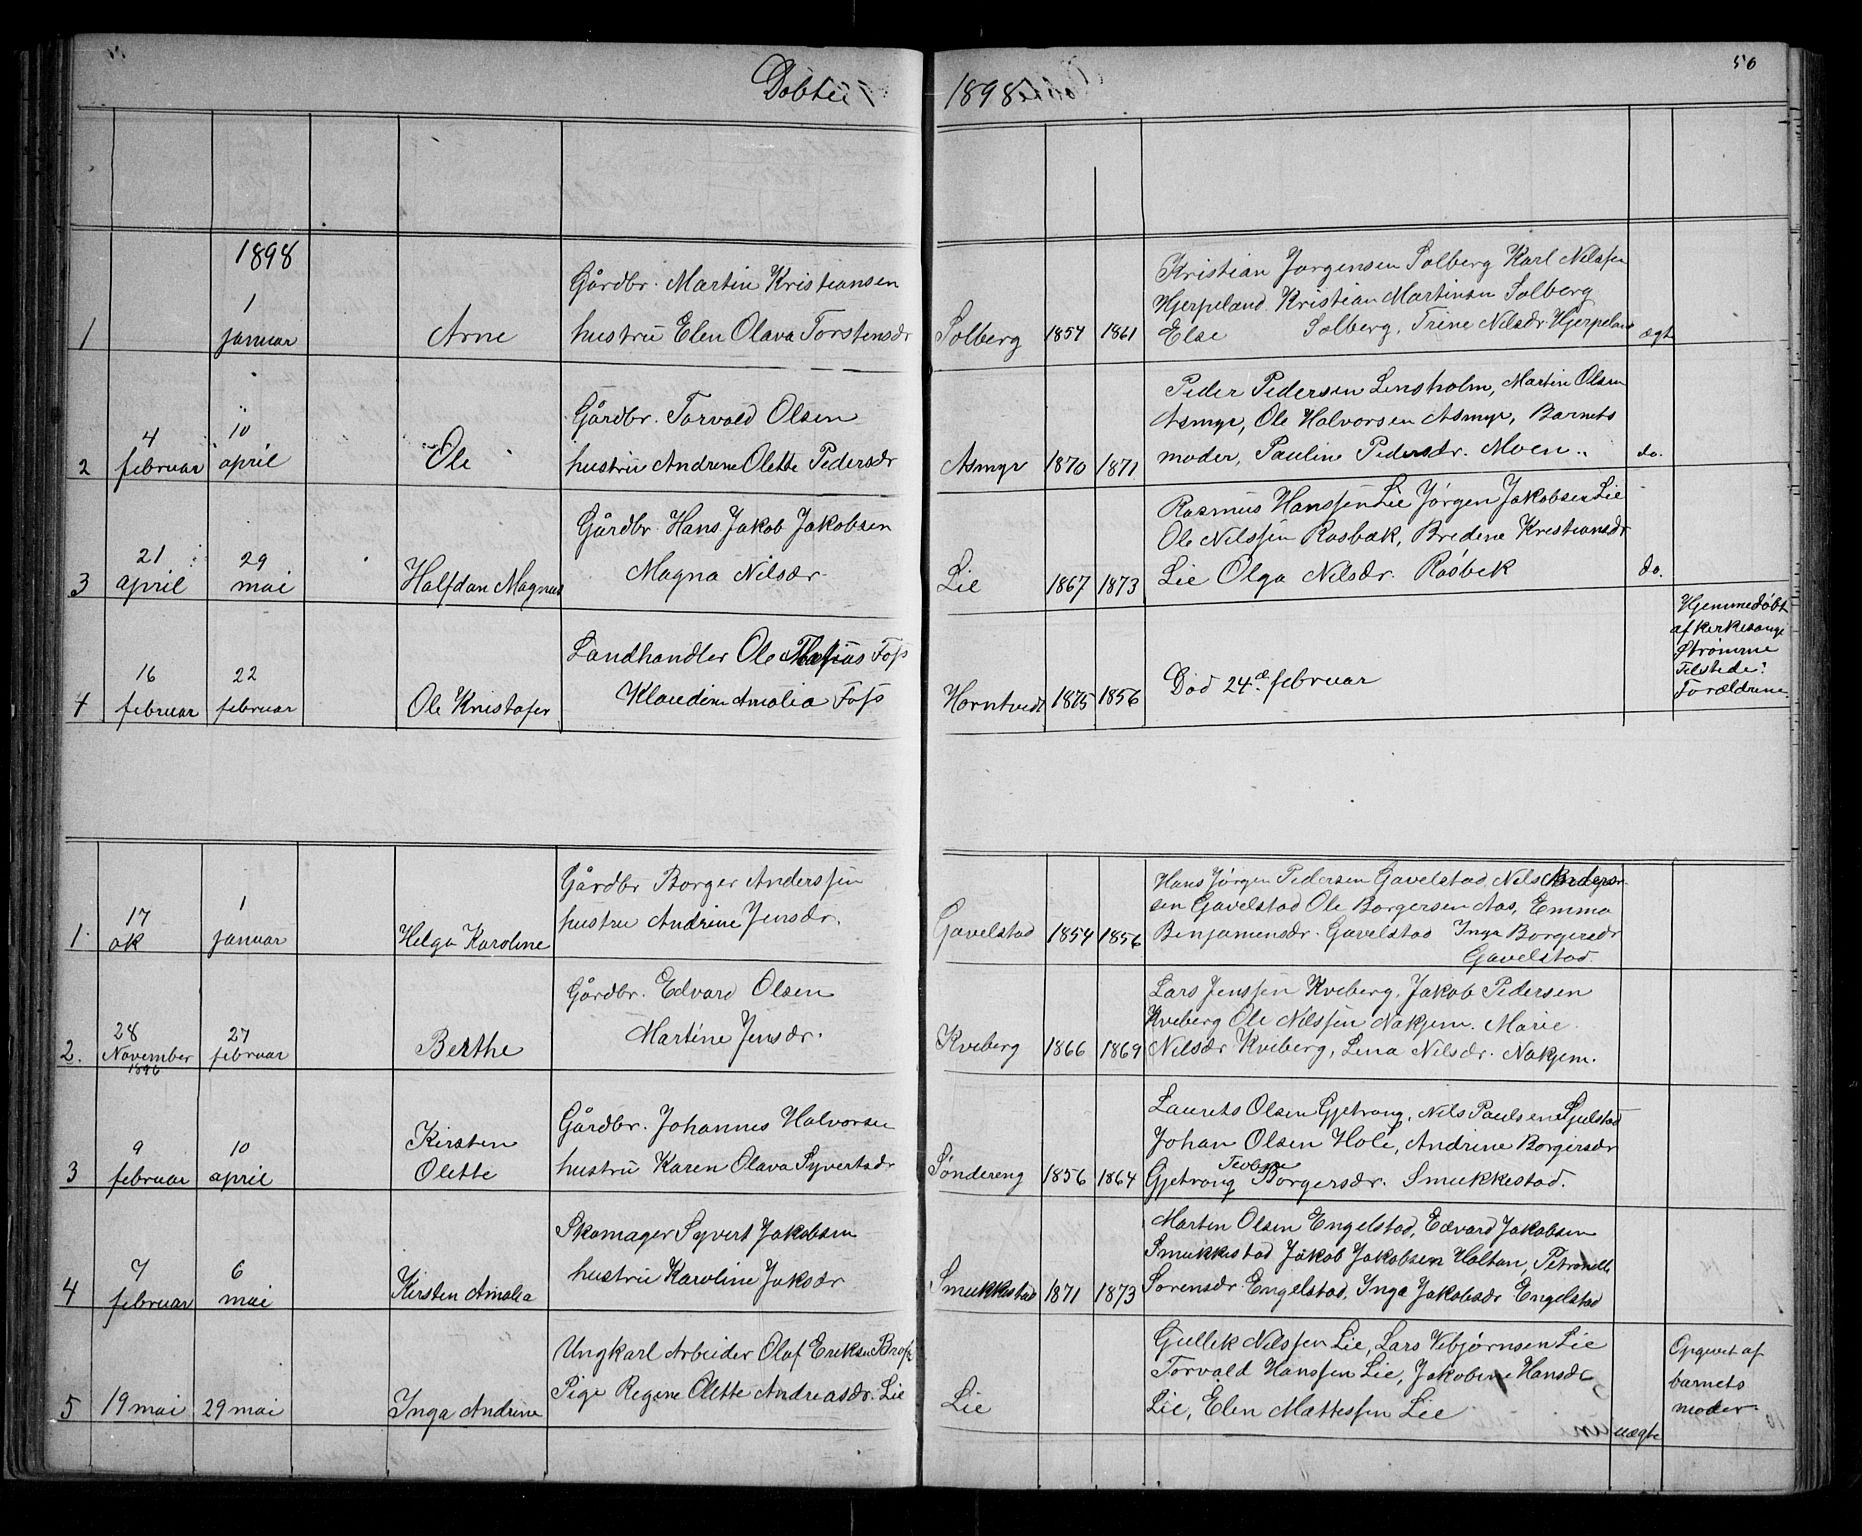 Døbte
1898
50
1898
1
1
januar
Arne
Gårdbr. Martin Kristiansen
hustru Elen Olava Torstensdr
Solberg
1857
1861
Kristian Jørgensen Solberg Karl Nilssen
Hjerpeland. Kristian Martinsen Solberg
Else Solberg, Trine Nilsdr Hjerpeland
ægte
2
4
februar
10
april
Ole
Gårdbr. Torvald Olsen
hustru Andrene Olette Pedersdr
Asmyr
1870
1871
Peder Pedersen Linsholm, Martin Olsen
Asmyr, Ole Halvorsen Asmyr, Barnets
moder, Pauline Pedersdr. Moen
do.
3
21
april
29
mai
Halfdan Magnus
Gårdbr. Hans Jakob Jakobsen
Magna Nilsdr.
Lie
1867
1873
Rasmus Hanssen Lie Jørgen Jakobsen Lie
Ole Nilssen Rasbæk, Bredine Kristiansdr
Lie Olga Nilsdr. Råsbek
do.
4
16
februar
22
februar
Ole Kristofer
Landhandler Ole Foss
Klaudine Amalia Foss
Horntvedt
1875
1856
Død 24de februar
Hjemmedøbt
af kirkesanger
Strømme
Tilstede:
Forældrene
1.
17
ok
1
januar
Helga Karoline
Gårdbr Borger Anderssen
hustru Andrine Jensdr.
Gavelstad
1854
1856
Hans Jørgen Pedersen Gavelstad, Nils Anders-
sen Gavelstad Ole Borgersen Aas, Emma
Benjamensdr. Gavelstad Inga Borgersdr
Gavelstad
2.
28
November
1896
27
februar
Berthe
Gårdbr. Edvard Olsen
Martine Jensdr.
Kveberg
1866
1869
Lars Jenssen Kveberg, Jakob Pedersen
Kveberg Ole Nilssen Nakjem. Marie
Nilsdr Kveberg, Lina Nilsdr. Nakjem.
3
9
februar
10
april
Kirsten
Olette
Gårdbr. Johannes Halvorsen
hustru Karen Olava Syvertsdr
Søndereng
1856
1864
Laurits Olsen Gjetrang, Nils Paulsen Gjelstad
Johan Olsen Hole, Andrine Borgersdr
Gjetrang Borgersdr. Smukkestad.
4
7
februar
6
mai
Kirsten Amalia
Skomager Syvert Jakobsen
hustru Karoline Jaksdr
Smukkestad
1871
1873
Martin Olsen Engelstad, Edvard Jakobsen
Smukkestad Jakob Jakobsen Holtan, Petronelle
Sørensdr Engelstad, Inga Jakobsdr Engelstad
5
19 mai
29 mai
Inga Andrine
Ungkarl Arbeider Olaf Eriksen
Pige Regine Olette Andreasdr. Lie
Lie
Gullek Nilssen Lie, Lars Vebjørnsen Lie
Torvald Hanssen Lie, Jakobine Hansdr
Lie, Elen Mattessen Lie
uægte
Opgivet af
barnets
moder